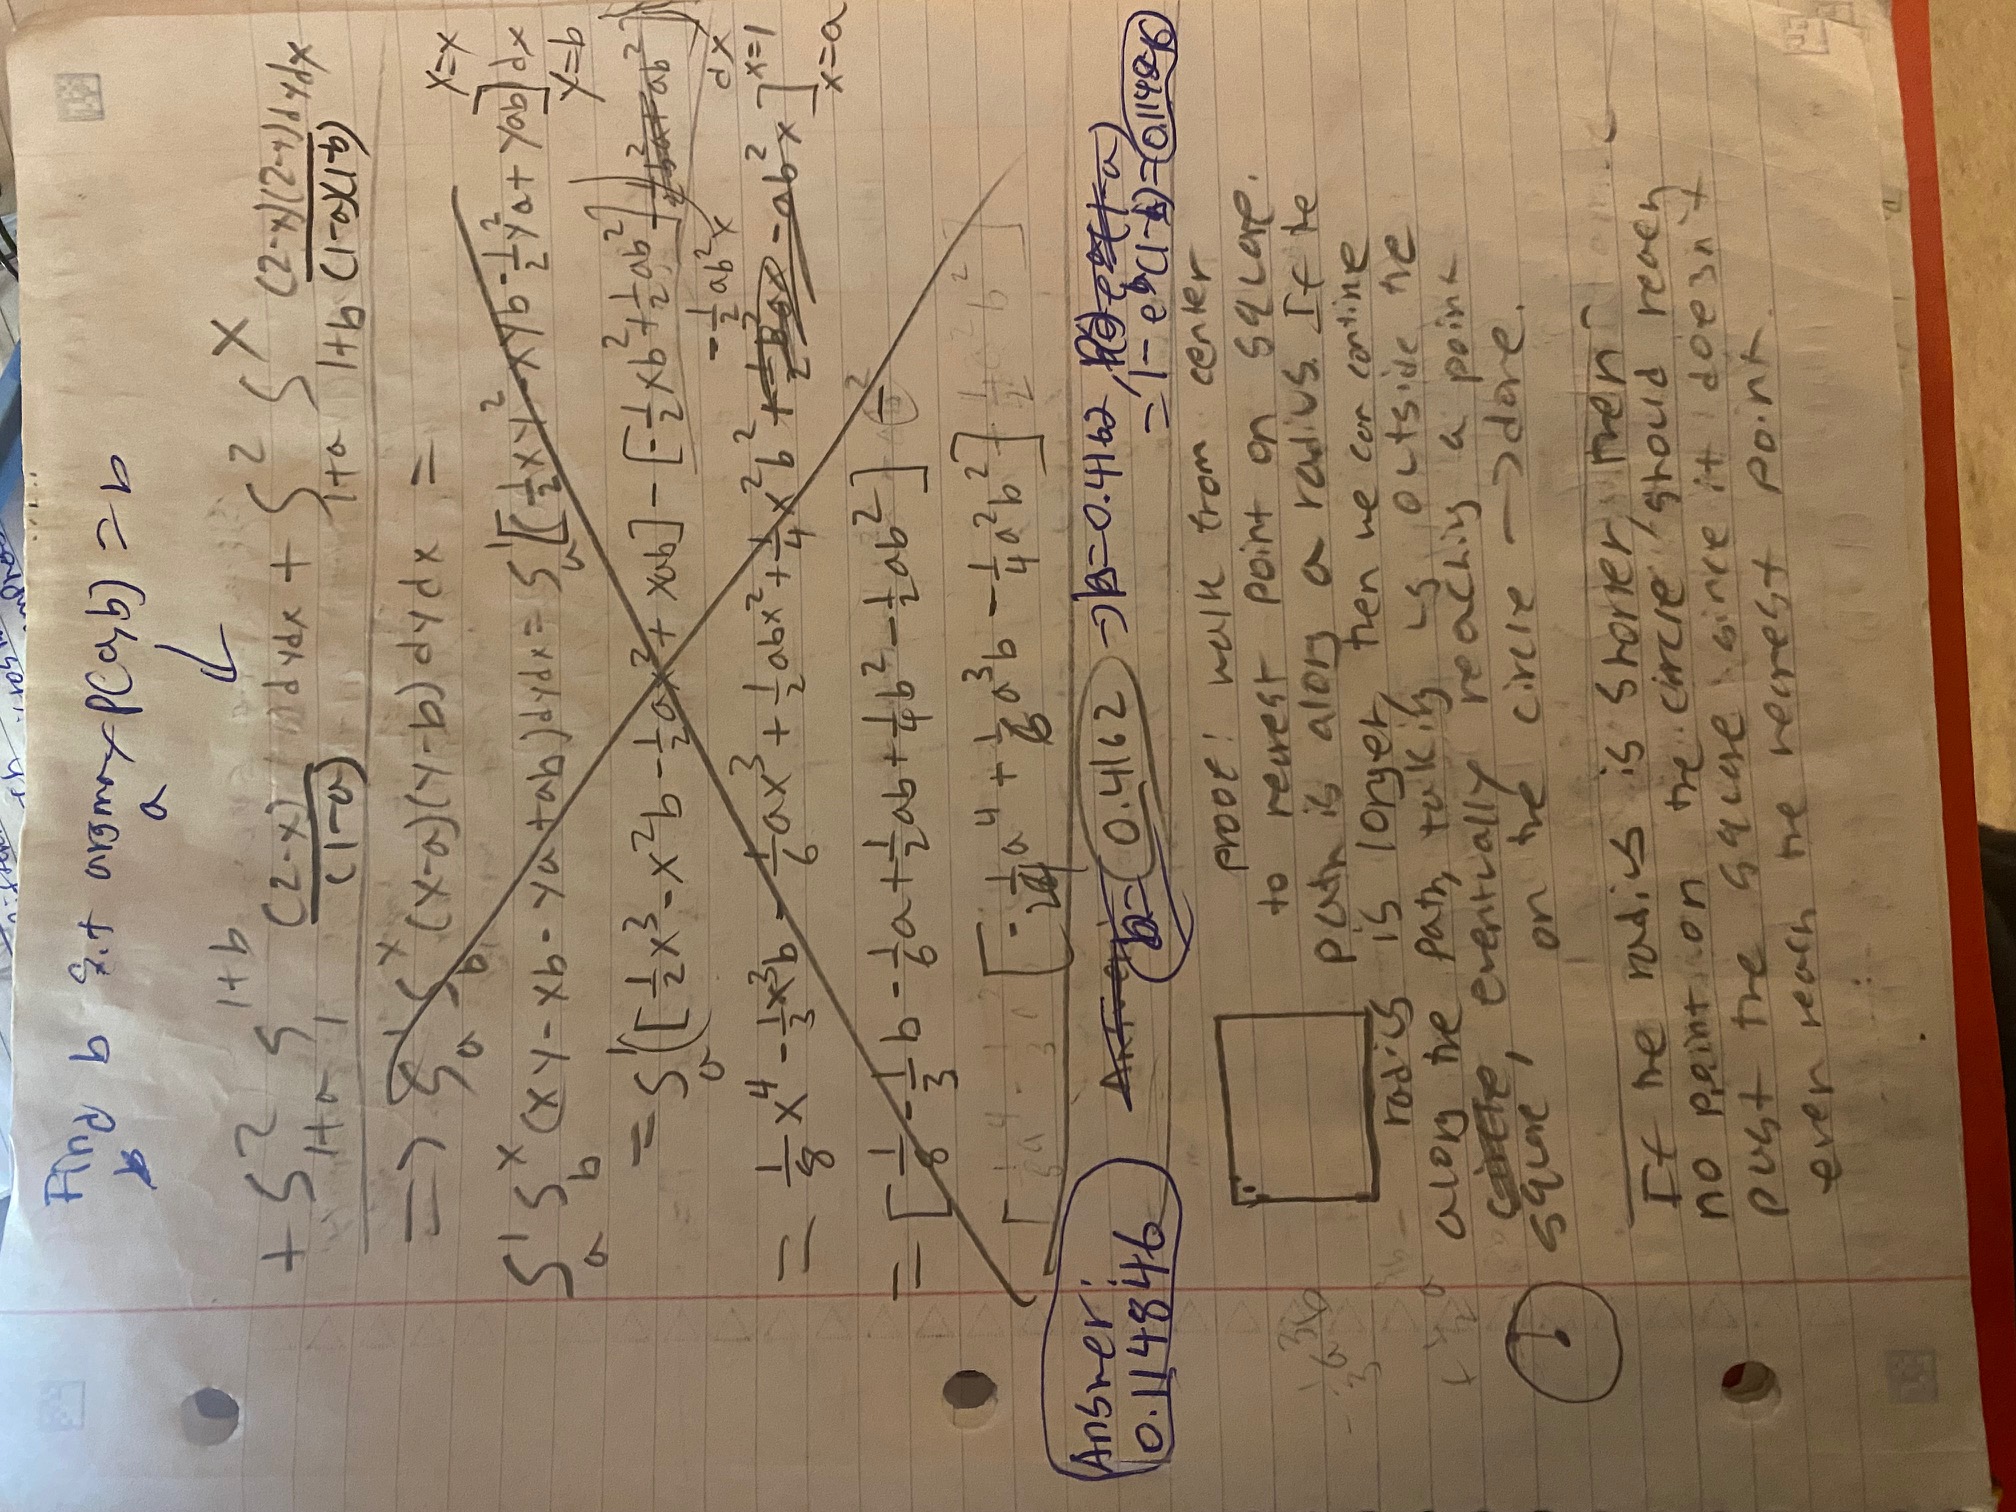 Find b s.t argmax P(a,b) = b
a
+ ∫_{1+a}^{2} ∫_{1}^{1+b} (2-x)/(1-a) dydx + ∫_{1+a}^{2} ∫_{1+b}^{x} (2-x)(2-y)dydx/(1-a)(1-b)
=> ∫_{a}^{1} ∫_{b}^{x} (x-a)(y-b) dydx =
∫_{a}^{1} ∫_{b}^{x} (xy-xb-ya+ab)dydx = ∫_{a}^{1} [(1/2 xy^2 - xyb - 1/2 y^2 a + yab] dx x=x y=b
= ∫_{a}^{1} ([1/2 x^3 - x^2 b - 1/2 ax^2 + xab] - [-1/2 xb^2 + 1/2 ab^2]) dx
-1/2 ab^2 x
= 1/8 x^4 - 1/3 x^3 b - 1/6 ax^3 + 1/2 abx^2 + 1/4 x^2 b^2 - ab^2 x ] x=1 x=a
= [1/8 - 1/3 b - 1/6 a + 1/2 ab + 1/4 b^2 - 1/2 ab^2] -
[-1/24 a^4 + 1/6 a^3 b - 1/4 a^2 b^2]
Answer:
0.114846
b= 0.4162 → b=0.4162,
= 1 - e^b(1-b) = 0.114846
proof: walk from center
to nearest point on square.
path is along a radius. If the
radius is longer, then we can continue
along the path, taking us outside the
circle, eventually reaching a point
square on the circle → done.
If the radius is shorter, then
no point on the circle should reach
past the square since it doesn't
even reach the nearest point.